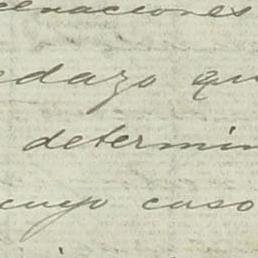 cenaciones
edazo qu
determin
cuyo caso